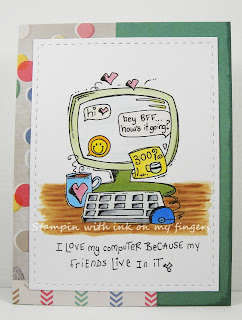 hi
hey BFF...
how's it going?
300%
Stampin with ink on my fingers
I LOVE my COMPUTER BECAUSE my
friends LIVE in IT